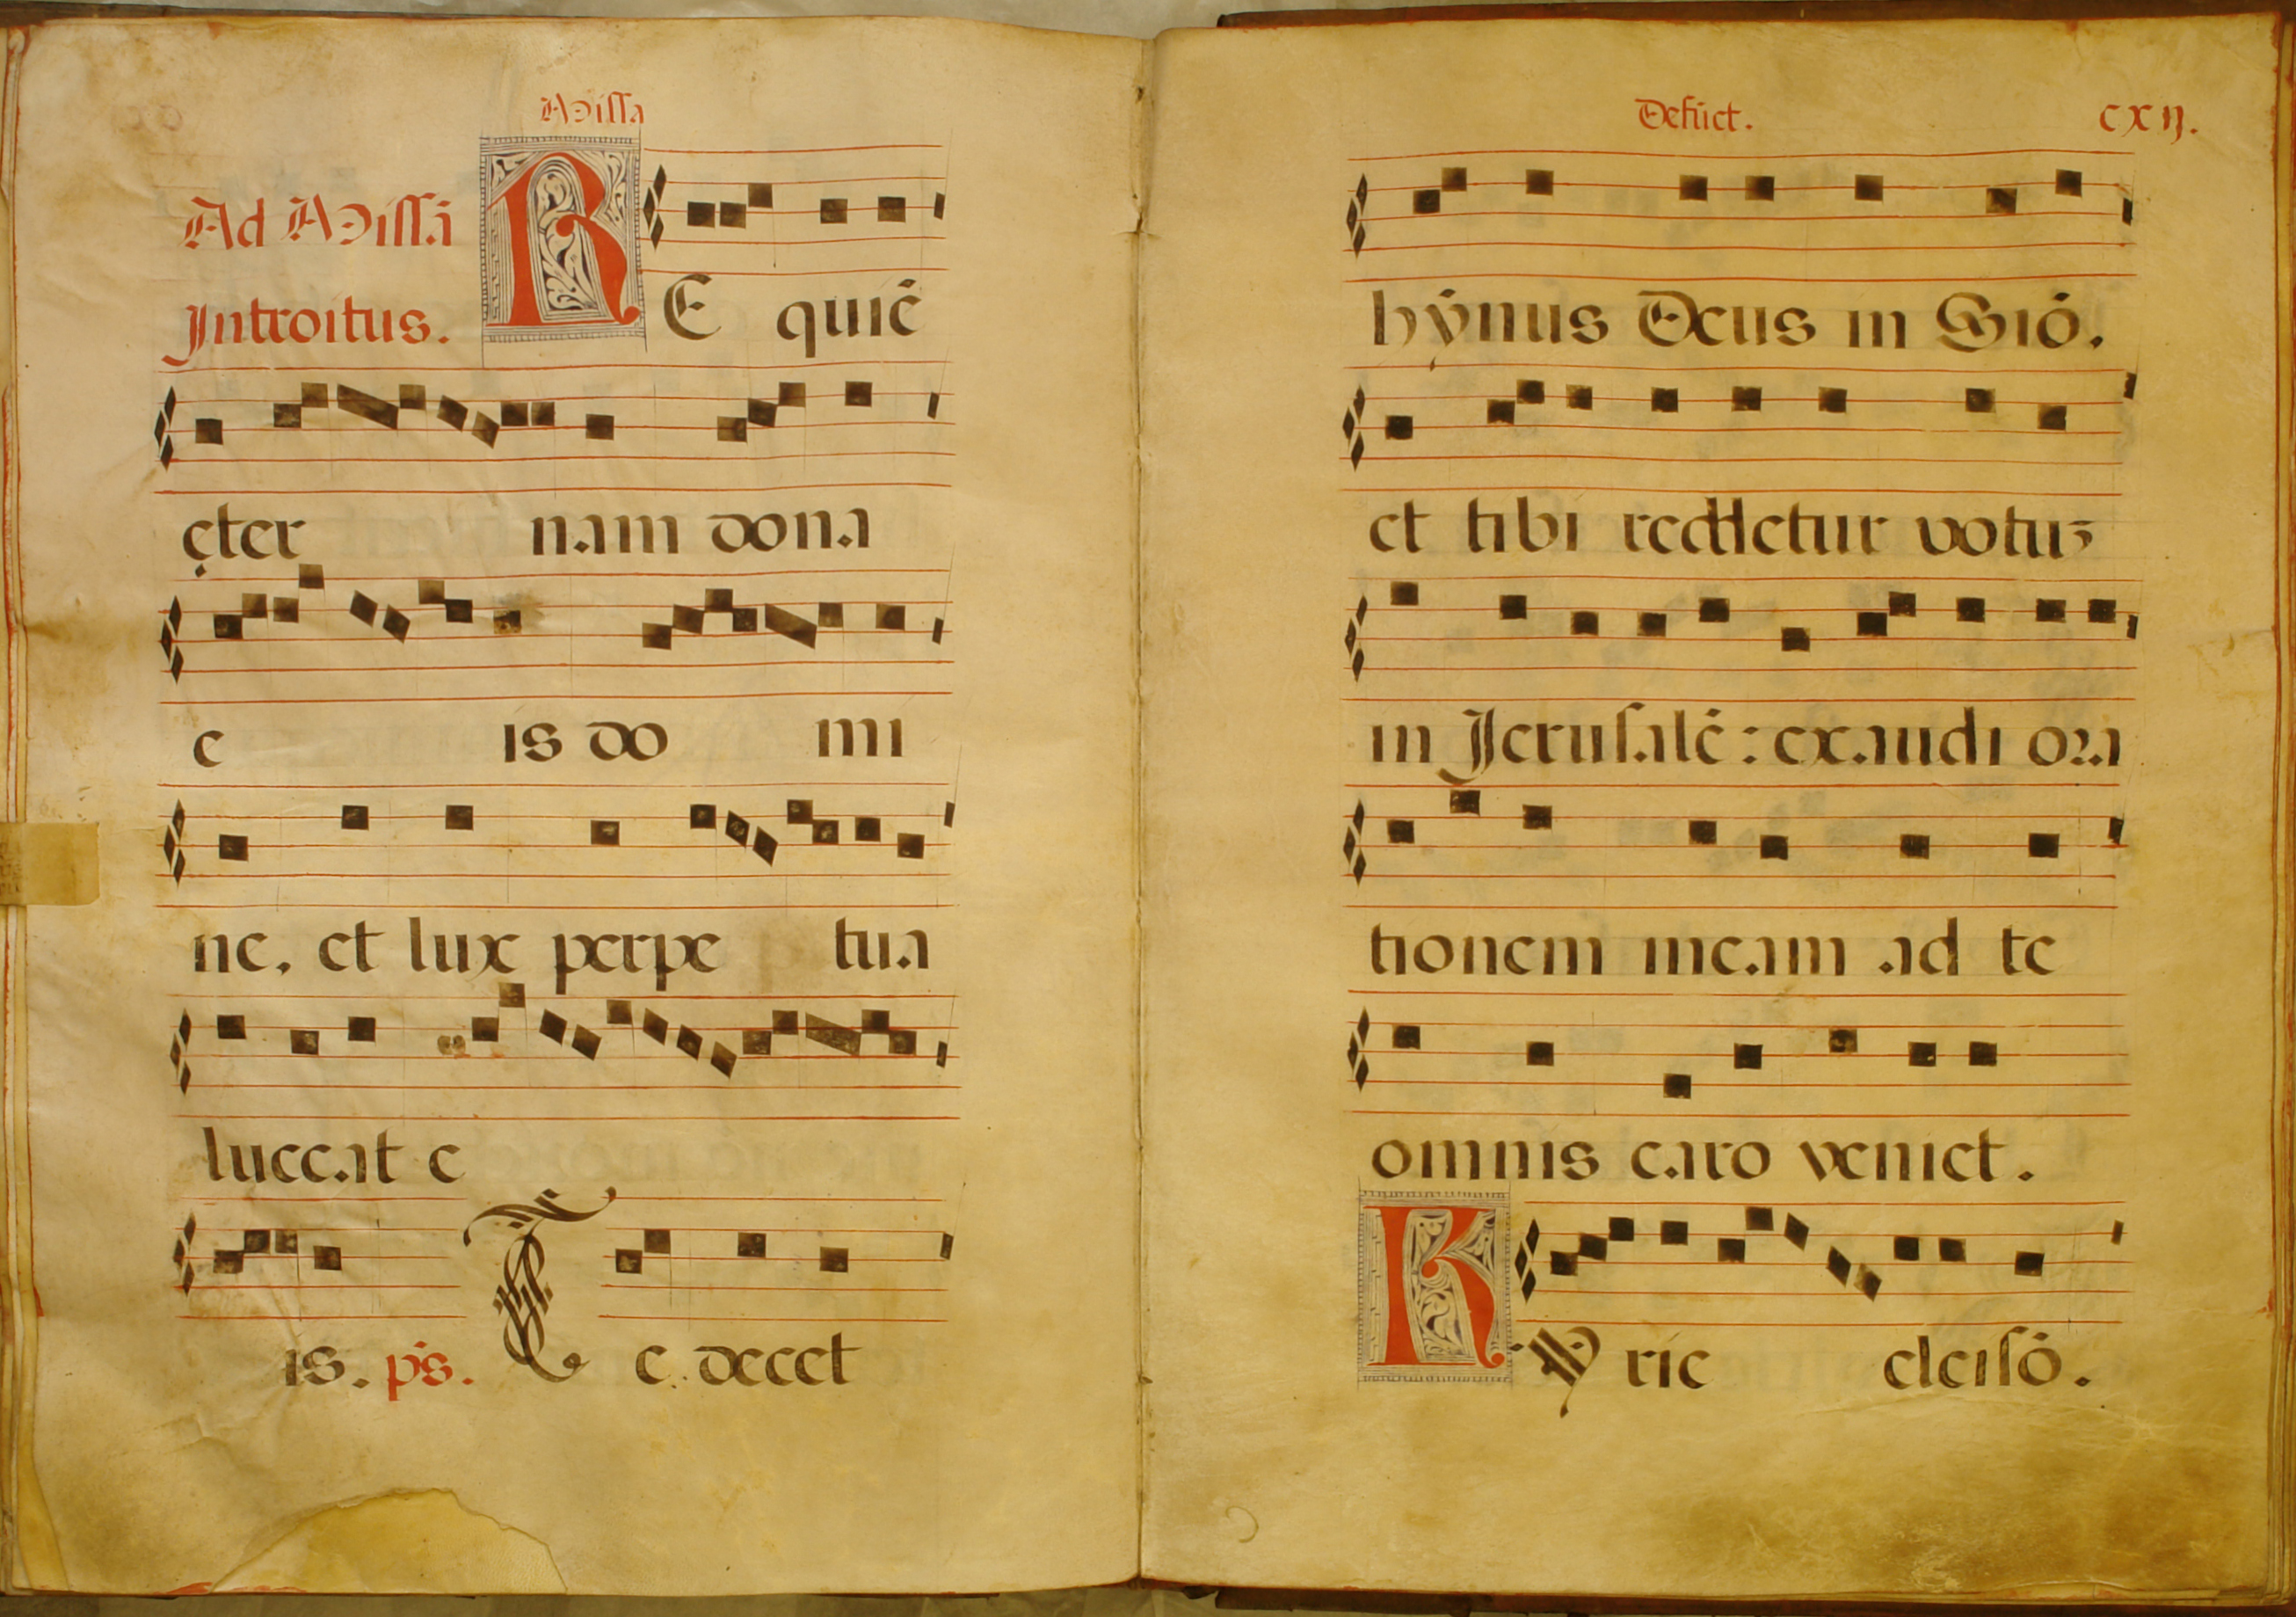 Missa
Ad Missā
Introitus.
RE quiē
ęter nam dona
e is do mi
ne. et lux perpe tua
luceat e
is. ps. Te decet
Defūct. cxij.
hẏmnus Deus in Siō.
et tibi reddetur votuʒ
in Jerusalē: exaudi ora
tionem meam ad te
omnis caro veniet.
Ky rie eleisō.